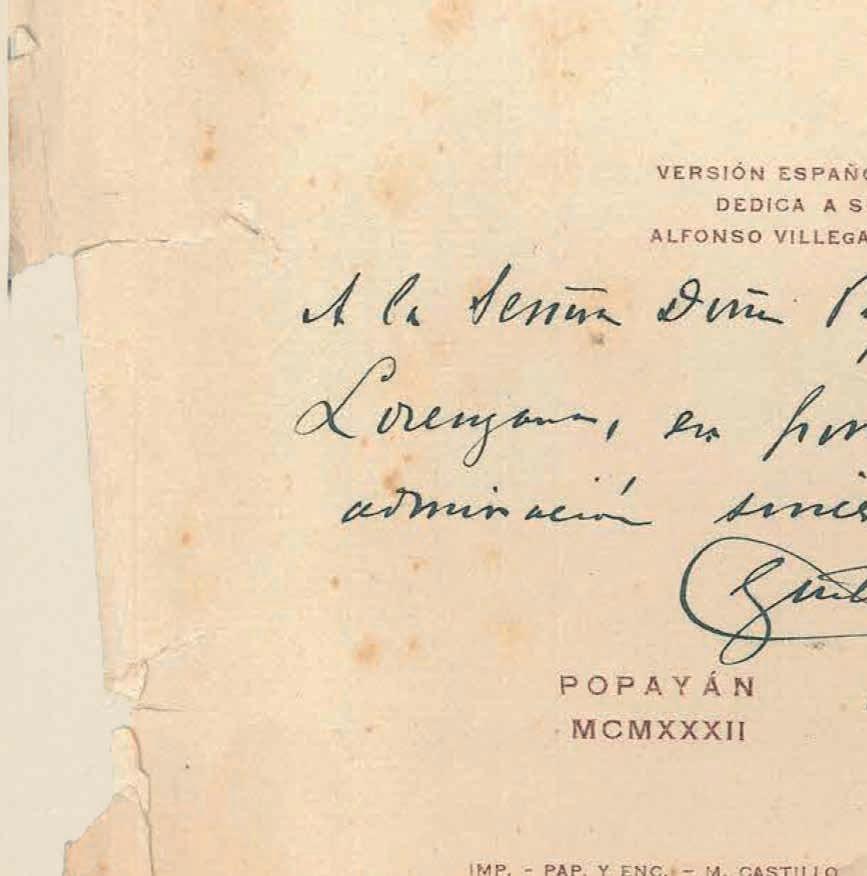 VERSIÓN ESPAÑO
DEDICA A S
ALFONSO VILLEGA
A la Señora Doña
Lorenzana, en
admiración since
POPAYÁN
MCMXXXII
IMP. - PAP. Y ENC. - M. CASTILLO